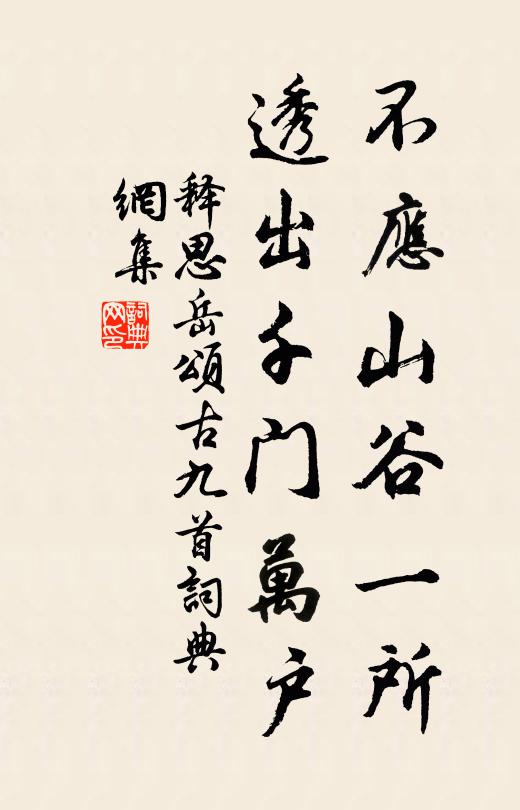 不應山谷一所
透出千门萬户
释思岳頌古九首詞典
網集
詞典
网印